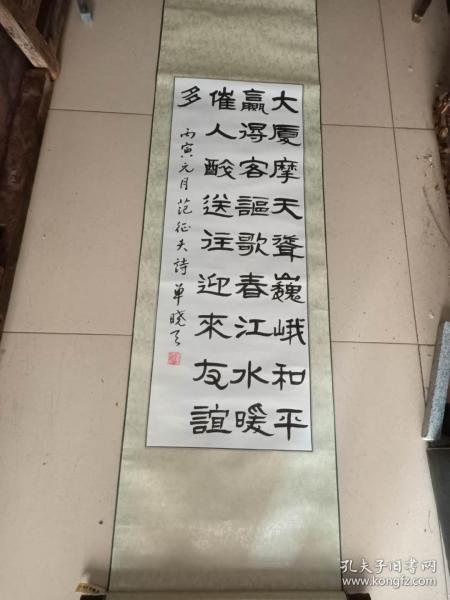 大厦摩天聳巍峨和平
贏得客謳歌春江水暖
催人酸送往迎來友誼
多
丙寅元月范征夫詩單曉天
孔夫子旧书网
www.kongfz.com